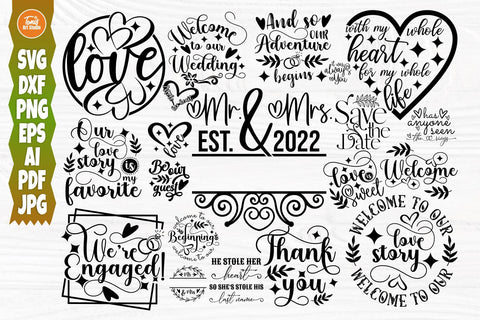 SVG
DXF
PNG
EPS
AI
PDF
JPG
love
Welcome
to our
Wedding
And so
OUR
Adventure
begins
it was
always
you
with my whole
heart
for my whole
life
Mr. & Mrs.
EST. 2022
Save
the
Date
has
anyone
seen
the
rings
Our
love
story
is
my
favorite
love
Be our
guest
Love
is
sweet
Welcome
We're
Engaged!
welcome to
our
Beginning
HE STOLE HER
heart
SO SHE'S STOLE HIS
last name
Thank
you
WELCOME TO OUR
love
story
WELCOME TO OUR